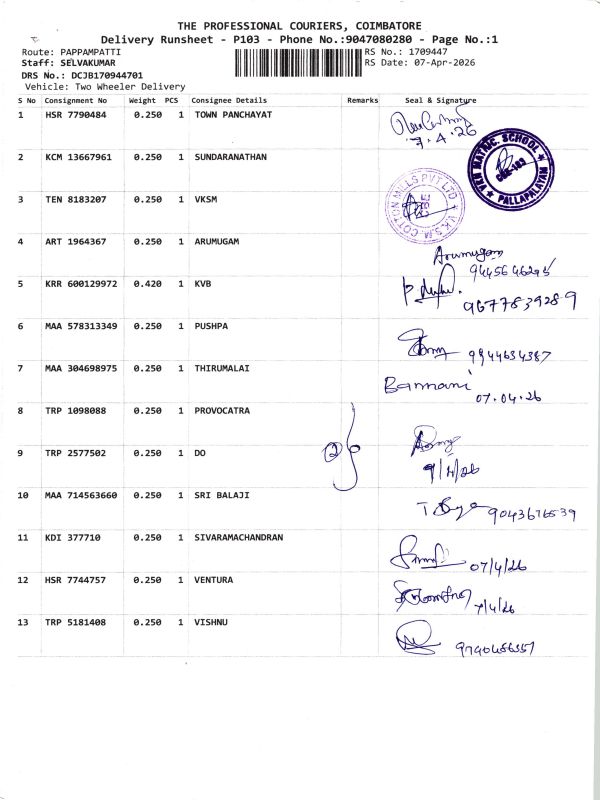 THE PROFESSIONAL COURIERS, COIMBATORE
Delivery Runsheet - P103 - Phone No.:9047080280 - Page No.:1
Route: PAPPAMPATTI
RS No.: 1709447
Staff: SELVAKUMAR
RS Date: 07-Apr-2026
DRS No.: DCJB170944701
Vehicle: Two Wheeler Delivery
S No Consignment No Weight PCS Consignee Details Remarks Seal & Signature
1 HSR 7790484 0.250 1 TOWN PANCHAYAT
7.4.26
2 KCM 13667961 0.250 1 SUNDARANATHAN
VKEN MATRIC. SCHOOL
PALLAPALAYAM
3 TEN 8183207 0.250 1 VKSM
V.K.S.M. COTTON MILLS PVT LTD
CBE
4 ART 1964367 0.250 1 ARUMUGAM
Arumugam
5 KRR 600129972 0.420 1 KVB
9677839289
6 MAA 578313349 0.250 1 PUSHPA
9944634387
7 MAA 304698975 0.250 1 THIRUMALAI
Bannani
07.04.26
8 TRP 1098088 0.250 1 PROVOCATRA
9 TRP 2577502 0.250 1 DO
2
9/4/26
10 MAA 714563660 0.250 1 SRI BALAJI
9043676539
11 KDI 377710 0.250 1 SIVARAMACHANDRAN
07/4/26
12 HSR 7744757 0.250 1 VENTURA
7/4/26
13 TRP 5181408 0.250 1 VISHNU